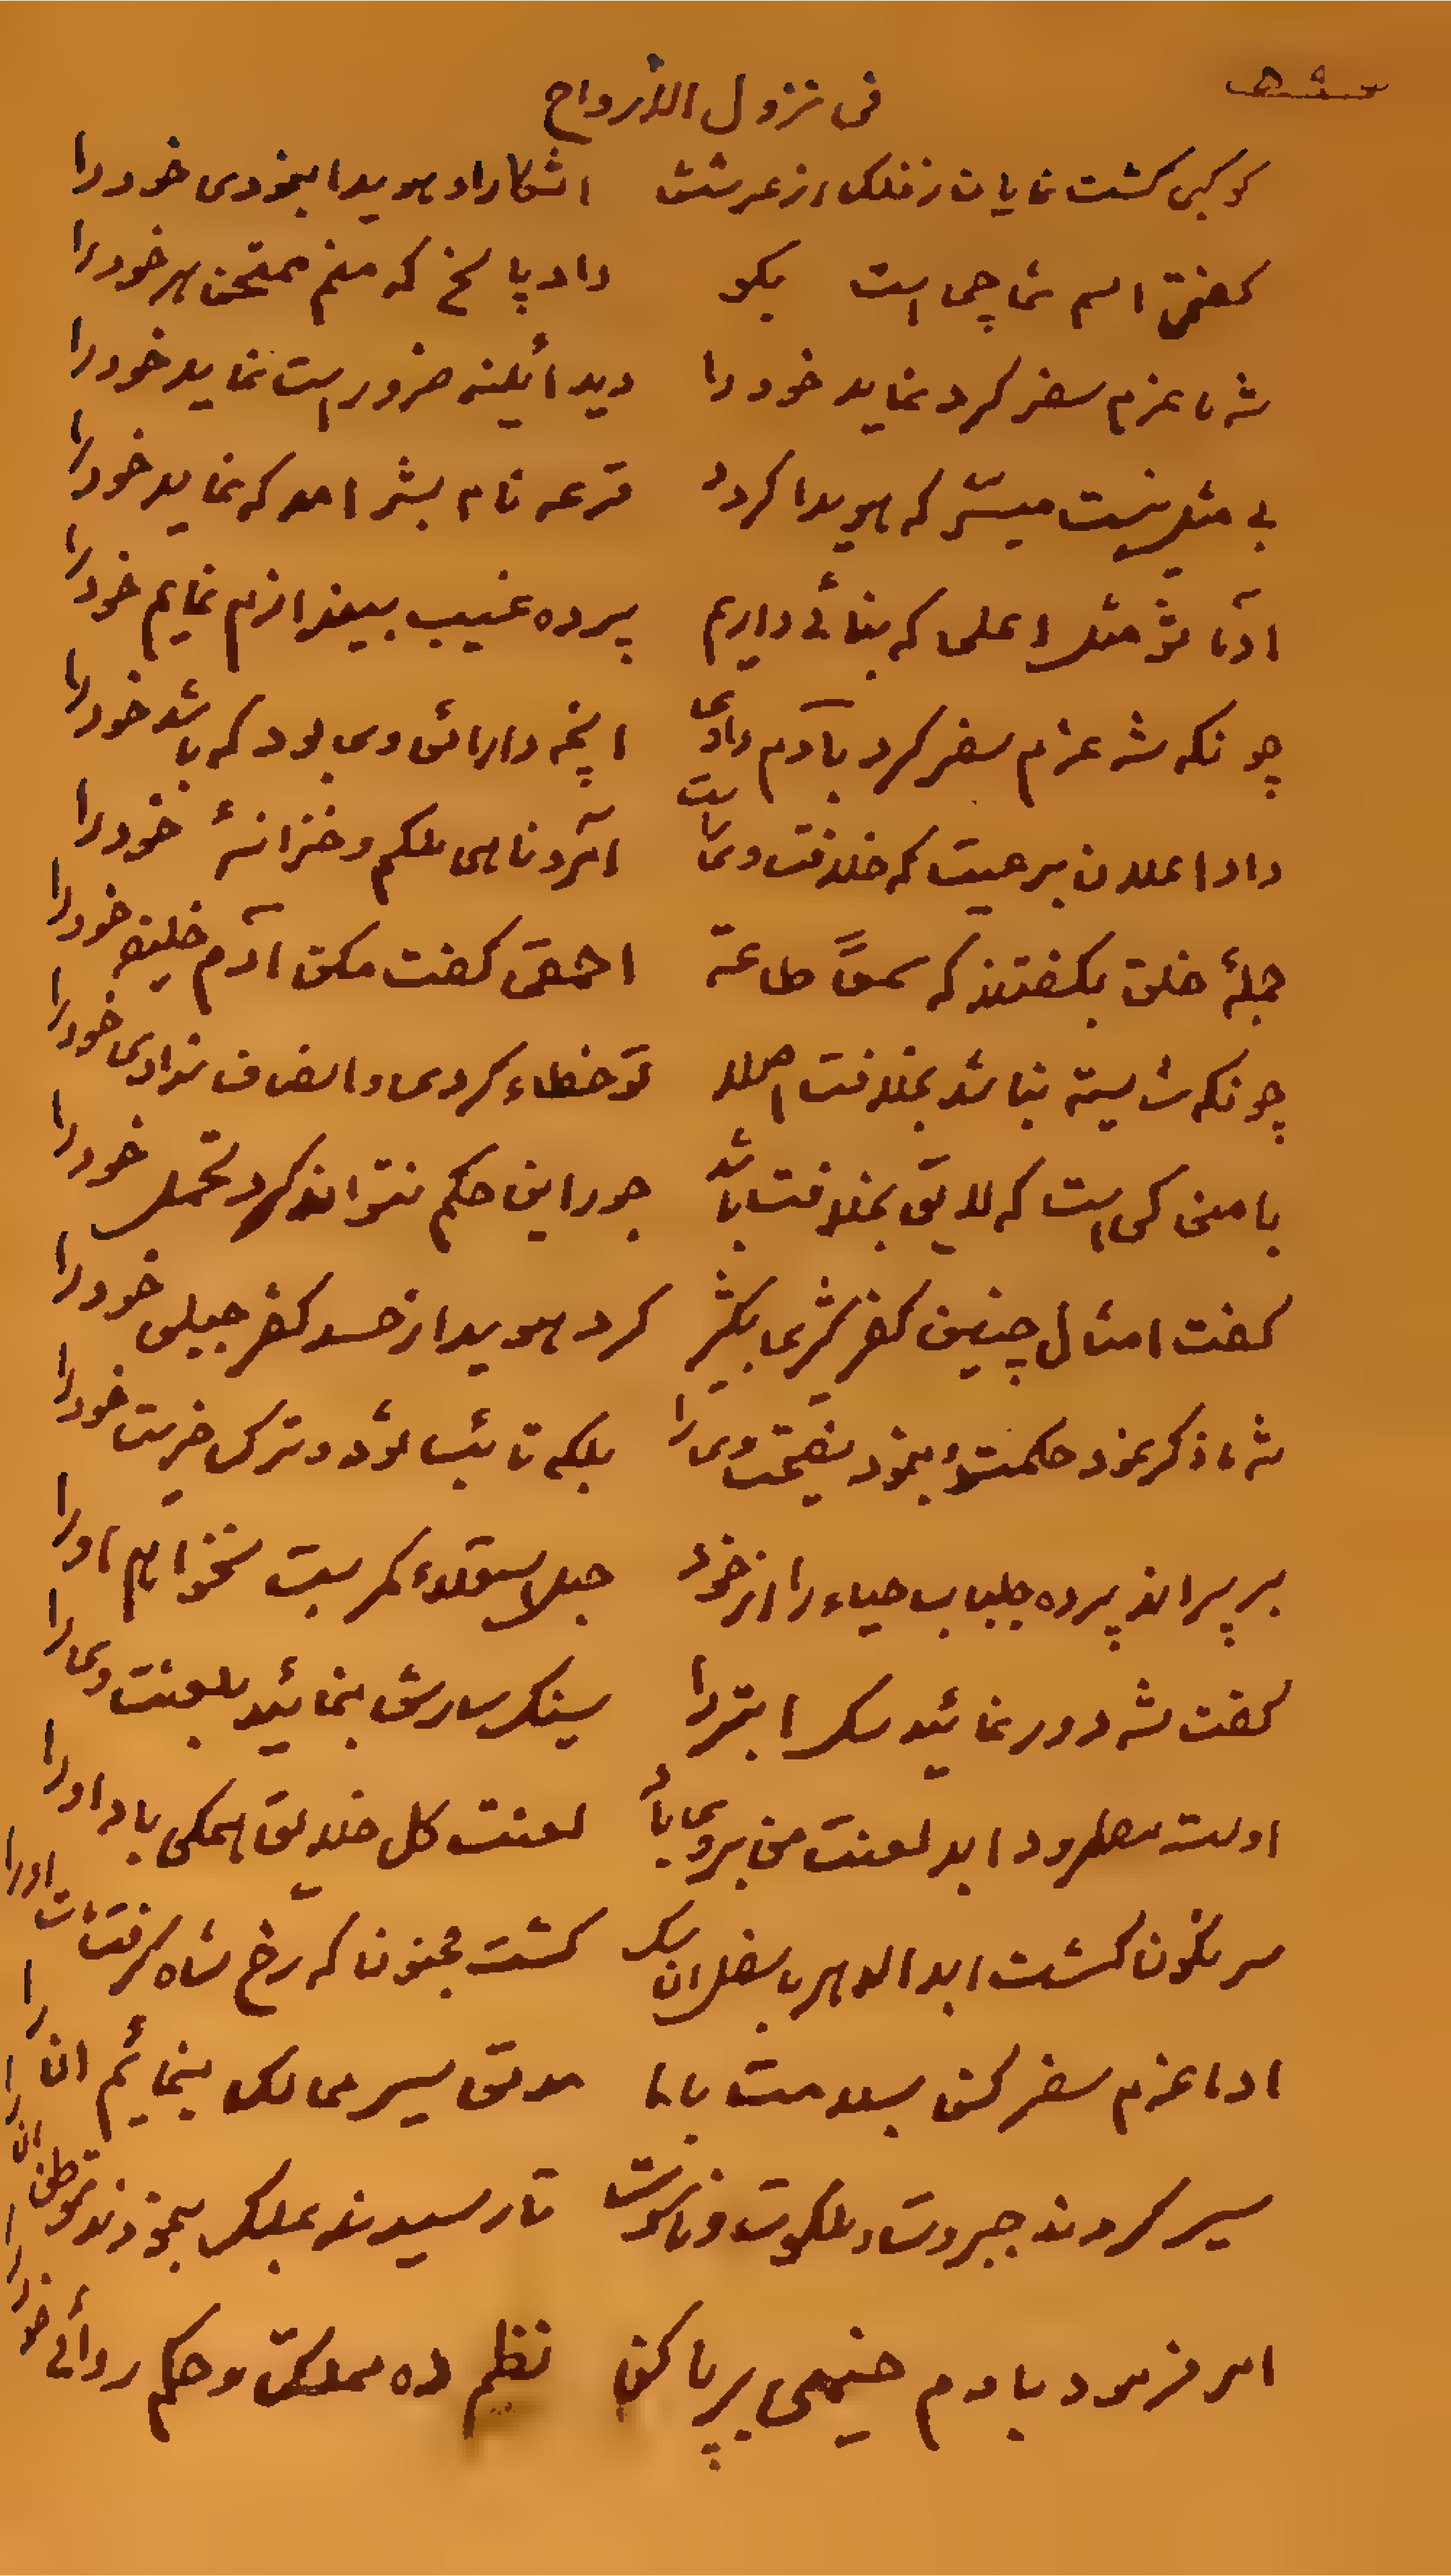 فی نزول الأرواح
کوکبی کشت نمایان ز فلک از عرشش اشکارا و هویدا بنمودی خود را
کفتمش اسم شما چی است بکو داد پاسخ که منم ممتحن بهر خود را
شه ما عزم سفر کرد نماید خود را دید ائینه ضرور است نماید خود را
بی مثل نیست میسّر که هویدا کردد قرعه نام بشر امد که نماید خود را
آدما شو مثل اعلی که بنائی داریم پرده غیب بیندازم نمایم خود را
چونکه شه عزم سفر کرد بآدم دادی انچه دارائی وی بود که باشد خود را
داد اعلان برعیت که خلافت وی راست آمر و ناهی ملکم و خزانهٔ خود را
جملهٔ خلق بکفتند که سمعاً طاعة احمقی کفت مکن آدم خلیفه خود را
چونکه شایسته نباشد بخلافت اصلا تو خطاء کردی و انصاف ندادی خود را
با منی کی است که لایق بخلافت باشد جور این حکم نتواند کرد تحمل خود را
کفت امثال چنین کفر کثری بکثر کرد هویدا از حسد کفر جبیلی خود را
شه ما ذکر نمود حکمت و بنمود نصیحت وی را بلکه تائب شود و ترک خریت خود را
بر پراند پرده جلباب حیاء را از خود جبل استقلاء کمر بست نخواهم او را
کفت شه دور نمائید سک ابتر را سینکسارش بنمائید بلعنت وی را
اوست مطرود ابد لعنت من بر وی باد لعنت کل خلایق همکی باد او را
سرنکون کشت ابد الدهر باسفل ان سک کشت مجنون که رخ شاه کرفتات او را
ادما عزم سفر کن بسلامت با ما مدتی سیر ممالک بنمائیم ان را
سیر کردند جبروت و ملکوت و ناسوت تا رسیدند بملک بنمودند توطن ان را
امر فرمود بادم خیمهی برپا کن نظم ده مملکتی و حکم روائی خود را